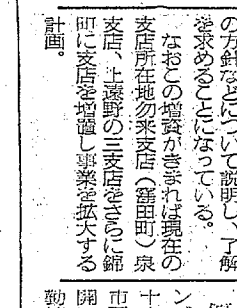 の方針などについて説明し、了解
を求めることになっている。
なおこの増資がきまれば現在の
支店所在地勿来支店（窪田町）泉
支店、上遠野の三支店をさらに錦
町に支店を増置し事業を拡大する
計画。
十
市
開
勤